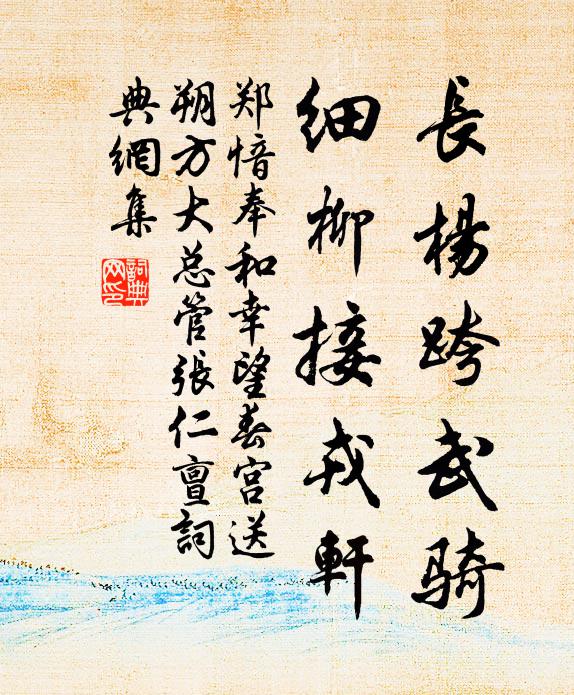 長楊跨武骑
细柳接戎軒
郑愔奉和幸望春宫送
朔方大总管張仁亶詞
典網集
詞典网印